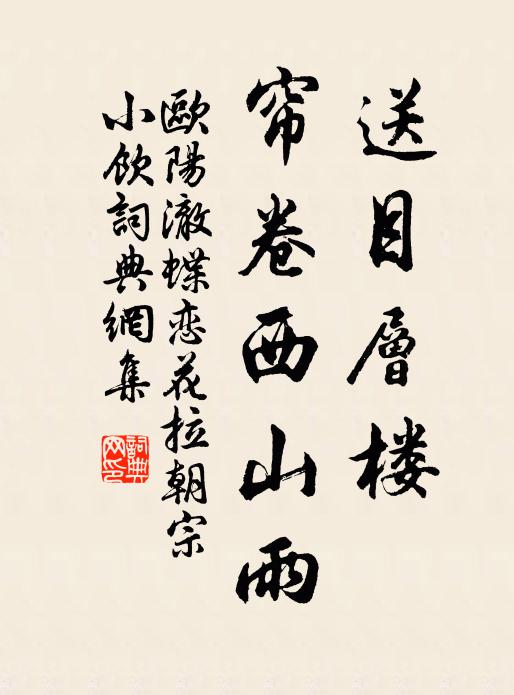 送目層楼
帘卷西山雨
歐陽澈蝶恋花拉朝宗
小飲詞典網集
詞典网印